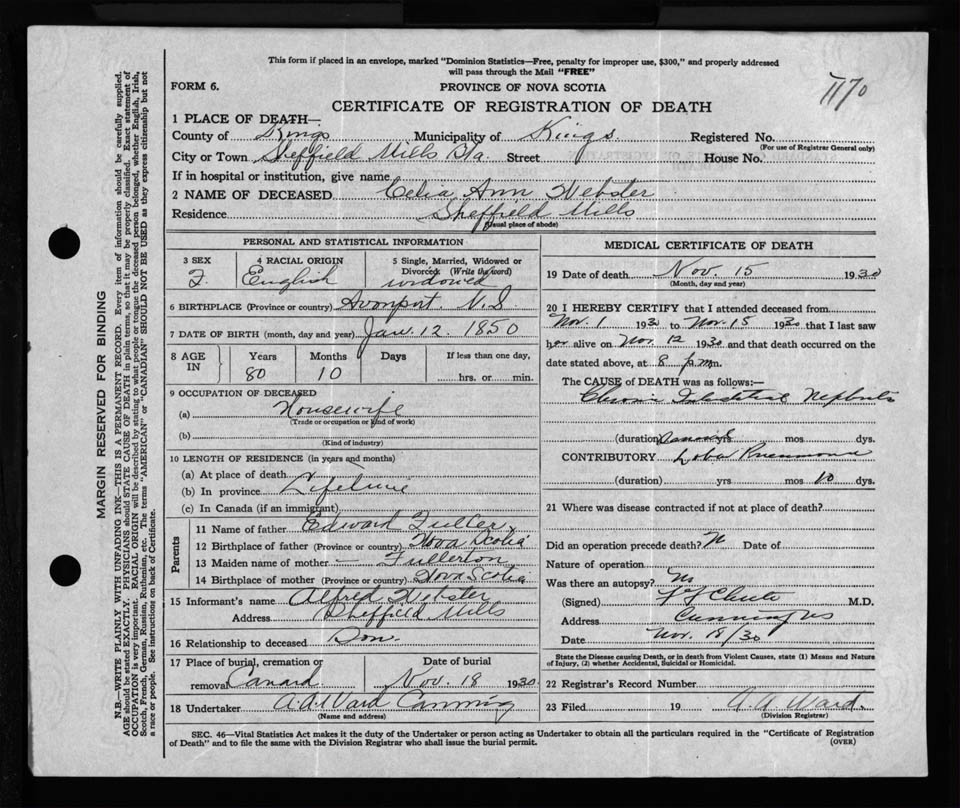 This form if placed in an envelope, marked "Dominion Statistics—Free, penalty for improper use, $300," and properly addressed
will pass through the Mail "FREE"
1170
FORM 6.
PROVINCE OF NOVA SCOTIA
CERTIFICATE OF REGISTRATION OF DEATH
1 PLACE OF DEATH—
County of Kings Municipality of Kings. Registered No.
(For use of Registrar General only)
City or Town Sheffield Mills Sta. Street House No.
If in hospital or institution, give name
2 NAME OF DECEASED Celia Ann Webster
Residence Sheffield Mills
(Usual place of abode)
PERSONAL AND STATISTICAL INFORMATION
3 SEX 4 RACIAL ORIGIN 5 Single, Married, Widowed or
Divorced. (Write the word)
F. English widowed
6 BIRTHPLACE (Province or country) Avonport N.S.
7 DATE OF BIRTH (month, day and year) Jan. 12. 1850
8 AGE IN Years Months Days If less than one day,
80 10 hrs. or min.
9 OCCUPATION OF DECEASED
(a) Housewife
(Trade or occupation or kind of work)
(b)
(Kind of industry)
10 LENGTH OF RESIDENCE (in years and months)
(a) At place of death
(b) In province Lifetime
(c) In Canada (if an immigrant)
Parents
11 Name of father Edward Fuller
12 Birthplace of father (Province or country) Nova Scotia
13 Maiden name of mother — Fullerton
14 Birthplace of mother (Province or country) Nova Scotia
15 Informant's name Alfred Webster
Address Sheffield Mills
16 Relationship to deceased Son.
17 Place of burial, cremation or Date of burial
removal Canard Nov. 18 1930
18 Undertaker A.A. Ward Canning
(Name and address)
MEDICAL CERTIFICATE OF DEATH
19 Date of death Nov. 15 1930
(Month, day and year)
20 I HEREBY CERTIFY that I attended deceased from
Nov. 1 1930 to Nov. 15 1930 that I last saw
her alive on Nov. 12 1930 and that death occurred on the
date stated above, at 8 p.m.m.
The CAUSE of DEATH was as follows:—
Chronic Interstitial Nephritis
(duration) yrs mos dys.
CONTRIBUTORY Lobar Pneumonia
(duration) yrs mos 10 dys.
21 Where was disease contracted if not at place of death?
Did an operation precede death? N Date of
Nature of operation
Was there an autopsy? No
(Signed) M.D.
Address Canning NS
Date Nov. 18/30
State the Disease causing Death, or in death from Violent Causes, state (1) Means and Nature
of Injury, (2) whether Accidental, Suicidal or Homicidal.
22 Registrar's Record Number
23 Filed 19 A.A. Ward.
(Division Registrar)
SEC. 46—Vital Statistics Act makes it the duty of the Undertaker or person acting as Undertaker to obtain all the particulars required in the "Certificate of Registration
of Death" and to file the same with the Division Registrar who shall issue the burial permit. (OVER)
MARGIN RESERVED FOR BINDING
N.B.—WRITE PLAINLY WITH UNFADING INK—THIS IS A PERMANENT RECORD. Every item of information should be carefully supplied.
AGE should be stated EXACTLY. PHYSICIANS should STATE CAUSE OF DEATH in plain terms so that it may be properly classified. Exact statement of
OCCUPATION is very important. RACIAL ORIGIN will be described by stating to what people or tongue the deceased person belonged, whether English, Irish,
Scotch, French, German, Russian, Ruthenian, etc. The terms "AMERICAN" or "CANADIAN" SHOULD NOT BE USED as they express citizenship but not
a race or people. See instructions on back of Certificate.